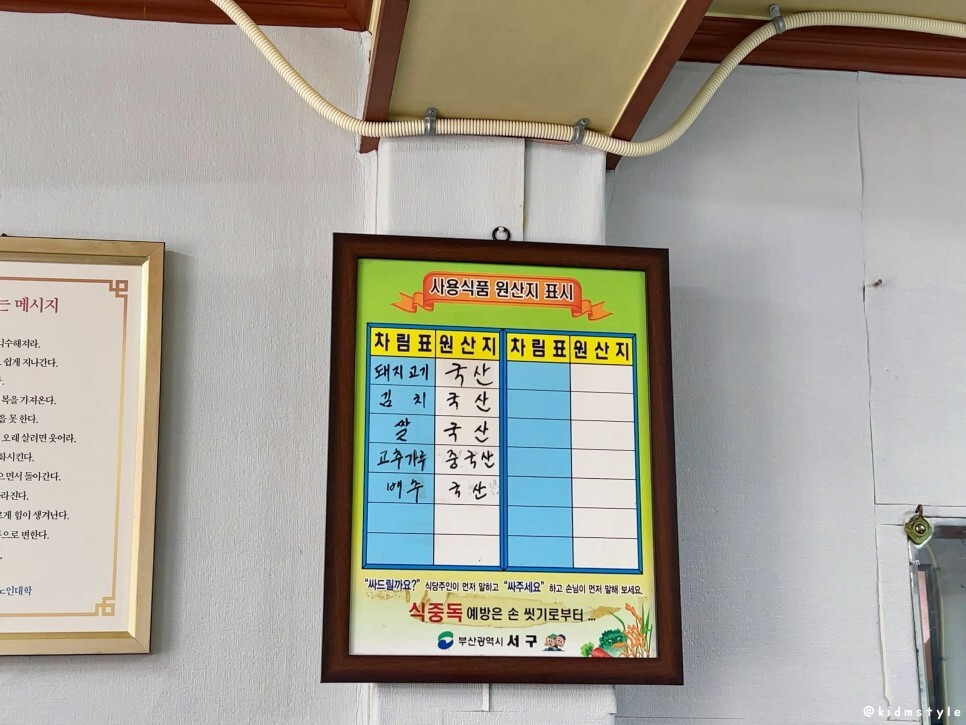 는 메시지
익수해져라.
쉽게 지나간다.
복을 가져온다.
을 못 한다.
오래 살려면 웃어라.
화시킨다.
으면서 돌아간다.
라진다.
르게 힘이 생겨난다.
으로 변한다.
노인대학
사용식품 원산지 표시
차림표 원산지 차림표 원산지
돼지고기 국산
김치 국산
쌀 국산
고추가루 중국산
배추 국산
"싸드릴까요?" 식당주인이 먼저 말하고 "싸주세요" 하고 손님이 먼저 말해 보세요.
식중독 예방은 손 씻기로부터...
부산광역시 서구
@kidmstyle